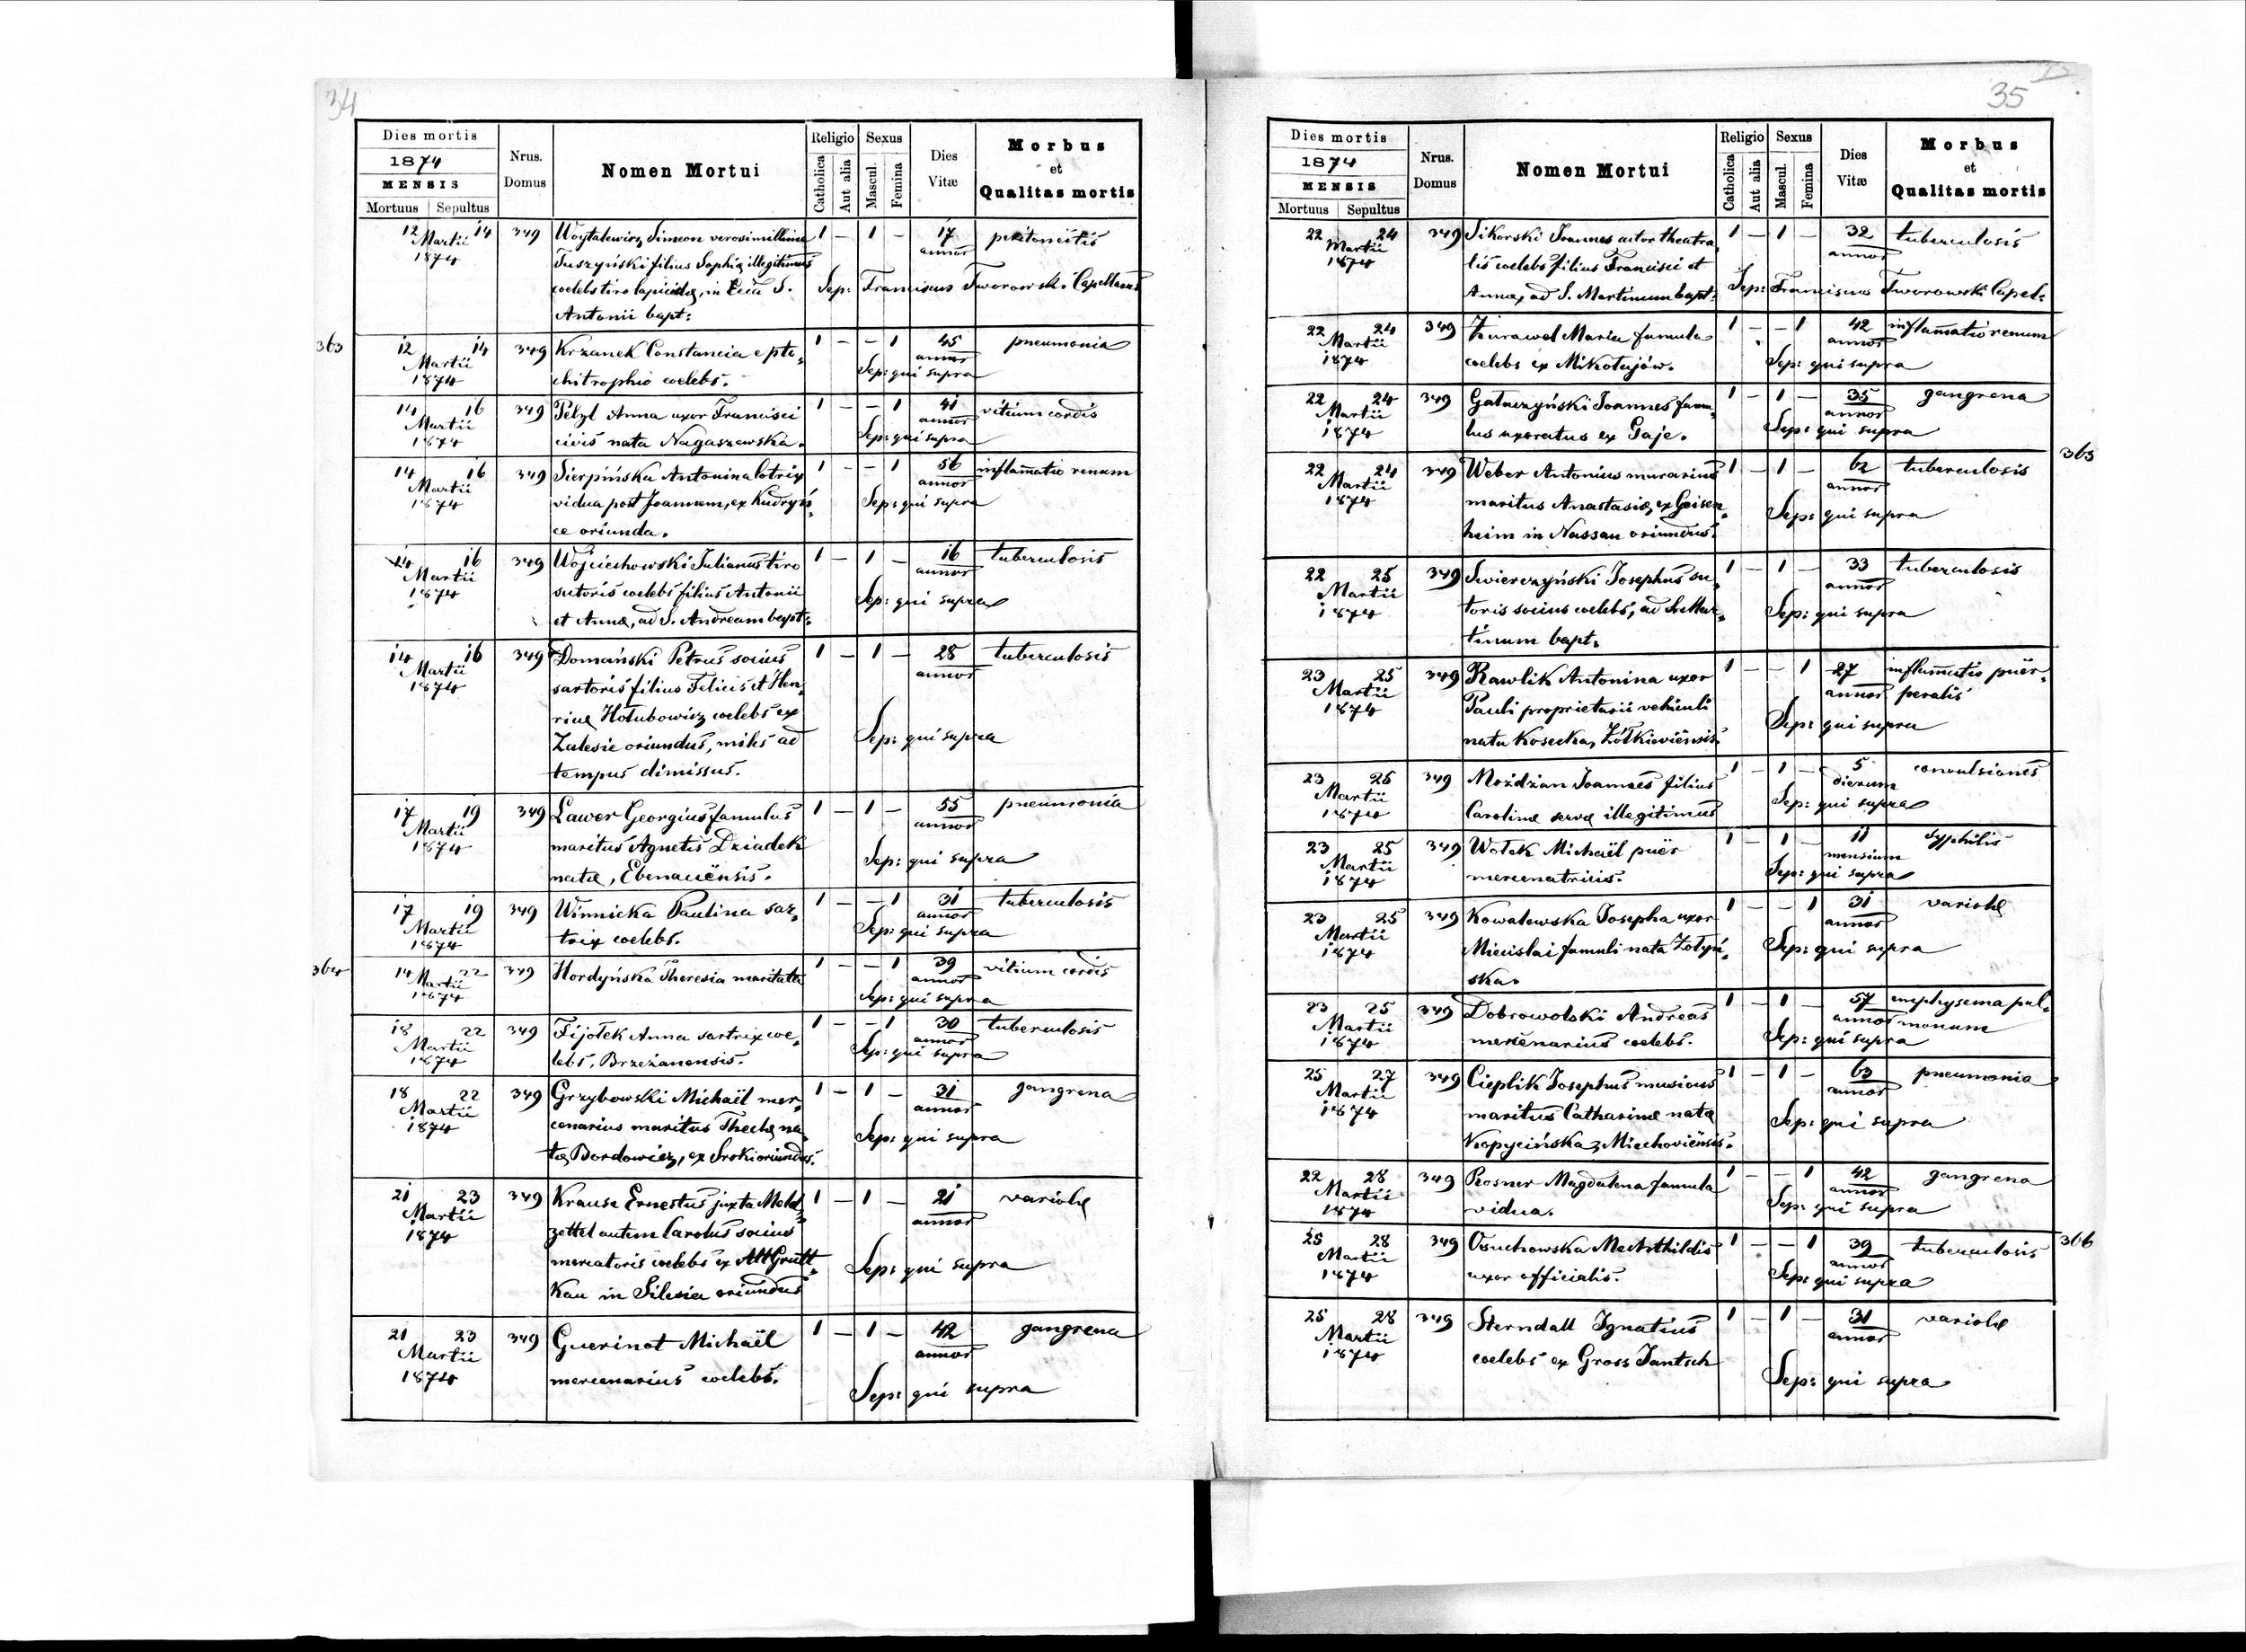 34
Dies mortis
1874
MENSIS
Mortuus Sepultus
Nrus.
Domus
Nomen Mortui
Religio
Catholica
Aut alia
Sexus
Mascul.
Femina
Dies
Vitæ
Morbus
et
Qualitas mortis
12 14 349 Woytalewicz Simeon verosimillime 1 – 1 – 17 peritoneitis
Martii Tuszyński filius Sophiæ illegitimus annor
1874 coelebs tiro lapicidæ, in Ecia S. Sep: Franciscus Tworowski Capellanus
Antonii bapt:
363
12 14 349 Krzanek Constancia e pto- 1 – – 1 45 pneumonia
Martii chitrophio coelebs. annor
1874 Sep: qui supra
14 16 349 Pelzl Anna uxor Francisci 1 – – 1 41 vitium cordis
Martii civis nata Nagaszewska. annor
1874 Sep: qui supra
14 16 349 Sierpińska Antonina lotrix 1 – – 1 56 inflam̄atio renum
Martii vidua post Joannem, ex Kudryń- annor
1874 ce oriunda. Sep: qui supra
14 16 349 Wojciechowski Julianus tiro 1 – 1 – 16 tuberculosis
Martii sutoris coelebs filius Antonii annor
1874 et Annæ, ad S. Andream bapt: Sep: qui supra
14 16 349 Domański Petrus socius 1 – 1 – 28 tuberculosis
Martii sartoris filius Felicis et Hen- annor
1874 ricæ Hołubowicz coelebs ex
Zalesie oriundus, miles ad Sep: qui supra
tempus dimissus.
17 19 349 Lawer Georgius famulus 1 – 1 – 55 pneumonia
Martii maritus Agnetis Dziadek annor
1874 natæ, Ebenauënsis. Sep: qui supra
17 19 349 Winnicka Paulina sar- 1 – – 1 31 tuberculosis
Martii trix coelebs. annor
1874 Sep: qui supra
364
14 22 349 Hordyńska Theresia maritata 1 – – 1 39 vitium cordis
Martii annor
1874 Sep: qui supra
18 22 349 Fijołek Anna sartrix coe- 1 – – 1 30 tuberculosis
Martii lebs, Brzeżanensis. annor
1874 Sep: qui supra
18 22 349 Grzybowski Michaël mer- 1 – 1 – 31 gangrena
Martii cenarius maritus Theclæ na- annor
1874 tæ Bordowicz, ex Sroki oriundus. Sep: qui supra
21 23 349 Krause Ernestus juxta Meld- 1 – 1 – 21 variolæ
Martii zettel autem Carolus socius annor
1874 mercatoris coelebs ex Alt Grutt- Sep: qui supra
kau in Silesia oriundus
21 23 349 Guerinot Michaël 1 – 1 – 42 gangrena
Martii mercenarius coelebs. annor
1874 Sep: qui supra
35
Dies mortis
1874
MENSIS
Mortuus Sepultus
Nrus.
Domus
Nomen Mortui
Religio
Catholica
Aut alia
Sexus
Mascul.
Femina
Dies
Vitæ
Morbus
et
Qualitas mortis
22 24 349 Sikorski Joannes actor theatra- 1 – 1 – 32 tuberculosis
Martii lis coelebs filius Francisci et annor
1874 Annæ, ad S. Martinum bapt: Sep: Franciscus Tworowski Capel:
22 24 349 Żurawel Maria famula 1 – – 1 42 inflam̄atio renum
Martii coelebs ex Mikołajów. annor
1874 Sep: qui supra
22 24 349 Gałuszyński Joannes famu- 1 – 1 – 35 gangrena
Martii lus uxoratus ex Gaje. annor
1874 Sep: qui supra
365
22 24 349 Weber Antonius murarius 1 – 1 – 62 tuberculosis
Martii maritus Anastasiæ, ex Geisen- annor
1874 heim in Nassau oriundus. Sep: qui supra
22 25 349 Swierczyński Josephus su- 1 – 1 – 33 tuberculosis
Martii toris socius coelebs, ad S. Mar- annor
1874 tinum bapt. Sep: qui supra
23 25 349 Rawlik Antonina uxor 1 – – 1 27 inflam̄atio puër-
Martii Pauli proprietarii vehiculi annor peralis
1874 nata Kosecka, Żółkieviënsis. Sep: qui supra
23 25 349 Moździan Joannes filius 1 – 1 – 5 convulsiones
Martii Carolinæ servæ illegitimus dierum
1874 Sep: qui supra
23 25 349 Wołek Michaël puër 1 – 1 – 11 syphilis
Martii mercenatricis. mensium
1874 Sep: qui supra
23 25 349 Kowalewska Josepha uxor 1 – – 1 31 variolæ
Martii Miecislai famuli nata Żołyń- annor
1874 ska. Sep: qui supra
23 25 349 Dobrowolski Andreas 1 – 1 – 57 emphysema pul-
Martii mercenarius coelebs. annor monum
1874 Sep: qui supra
25 27 349 Cieplik Josephus musicus 1 – 1 – 63 pneumonia
Martii maritus Catharinæ natæ annor
1874 Kopycińska, Miechoviënsis. Sep: qui supra
22 28 349 Rosner Magdalena famula 1 – – 1 42 gangrena
Martii vidua. annor
1874 Sep: qui supra
25 28 349 Osuchowska Mechthildis 1 – – 1 39 tuberculosis 366
Martii uxor officialis. annor
1874 Sep: qui supra
25 28 349 Sterndall Ignatius 1 – 1 – 31 variolæ
Martii coelebs ex Gross Jantsch annor
1874 Sep: qui supra